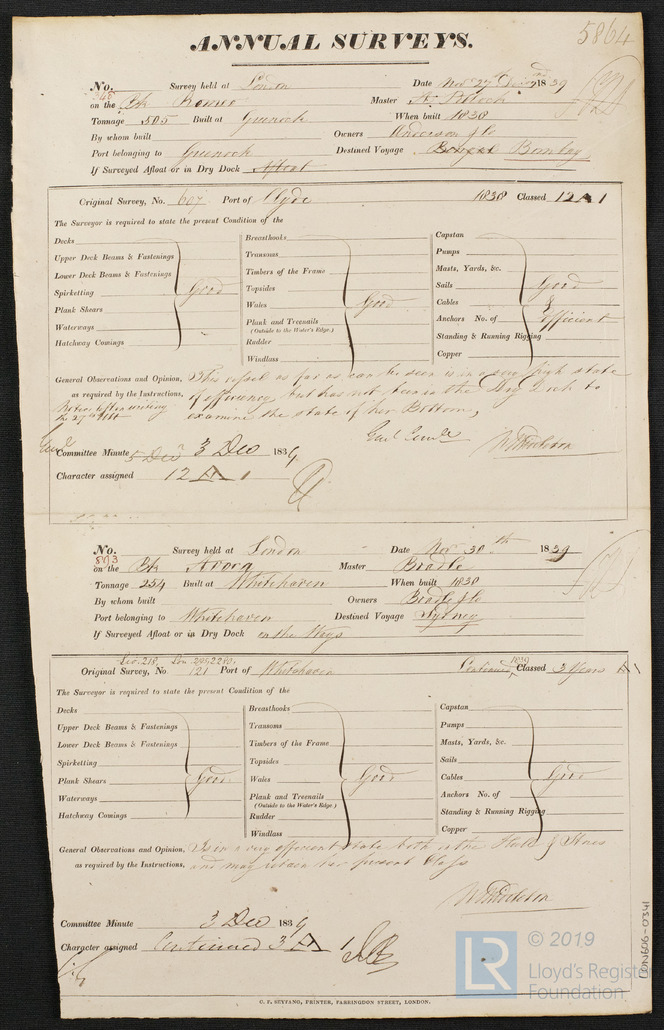 5864
ANNUAL SURVEYS.
No. 348 Survey held at London Date Nov 27 1839
on the Bk Romeo Master
Tonnage 505 Built at Greenock When built 1838
By whom built Owners Anderson & Co
Port belonging to Greenock Destined Voyage Bombay
If Surveyed Afloat or in Dry Dock Afloat
Original Survey, No. 607 Port of Clyde 1838 Classed 12 A 1
The Surveyor is required to state the present Condition of the
Decks
Upper Deck Beams & Fastenings
Lower Deck Beams & Fastenings
Spirketting
Plank Shears
Waterways
Hatchway Comings
Good
Breasthooks
Transoms
Timbers of the Frame
Topsides
Wales
Plank and Treenails
(Outside to the Water's Edge.)
Rudder
Windlass
Good
Capstan
Pumps
Masts, Yards, &c.
Sails
Cables
Anchors No. of
Standing & Running Rigging
Copper
Good
&
efficient
General Observations and Opinion, This vessel as far as can be seen is in a very high state
as required by the Instructions, of efficiency but has not been in the Dry Dock to
examine the state of her Bottom,
Committee Minute 5 Dec 3 Dec 1839
Character assigned 12 A 1
No. 893 Survey held at London Date Nov 30th 1839
on the Bk Master Beadle
Tonnage 254 Built at Whitehaven When built 1830
By whom built Owners Beadle & Co
Port belonging to Whitehaven Destined Voyage Sydney
If Surveyed Afloat or in Dry Dock on the Ways
Original Survey, No. 121 Port of Whitehaven Continued 1839 Classed 3 Years A 1
The Surveyor is required to state the present Condition of the
Decks
Upper Deck Beams & Fastenings
Lower Deck Beams & Fastenings
Spirketting
Plank Shears
Waterways
Hatchway Comings
Good
Breasthooks
Transoms
Timbers of the Frame
Topsides
Wales
Plank and Treenails
(Outside to the Water's Edge.)
Rudder
Windlass
Good
Capstan
Pumps
Masts, Yards, &c.
Sails
Cables
Anchors No. of
Standing & Running Rigging
Copper
Good
General Observations and Opinion, Is in a very efficient state both in the Hull & Stores
as required by the Instructions, and may retain her present Class
Committee Minute 3 Dec 1839
Character assigned Continued 3 A 1
C. F. SEYFANG, PRINTER, FARRINGDON STREET, LONDON.
LON606-0341
LR © 2019
Lloyd's Register
Foundation